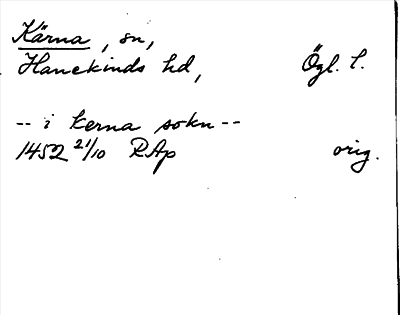 Kärna, sn,
Hanekinds hd, Ögl. l.
-- i kerna sokn --
1452 21/10 RAp orig.